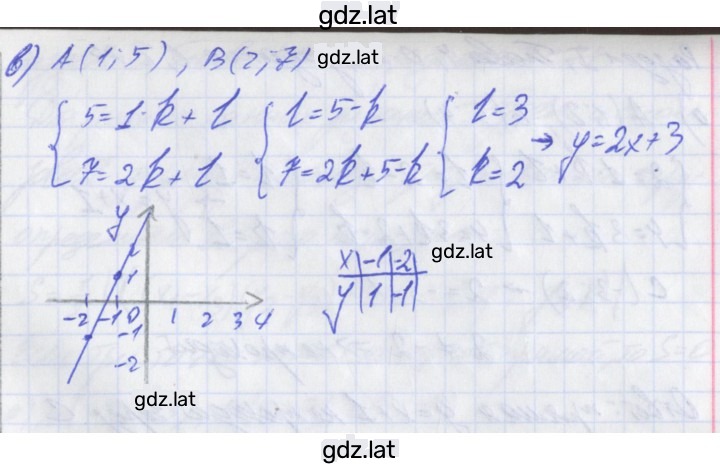 gdz.lat
в) A(1;5), B(2;7)
gdz.lat
5=1·k+l
7=2k+l
l=5-k
7=2k+5-k
l=3
k=2
→ y=2x+3
y
2
1
-2 -1 0 1 2 3 4
-1
-2
gdz.lat
x -1 -2
y 1 -1
gdz.lat
gdz.lat